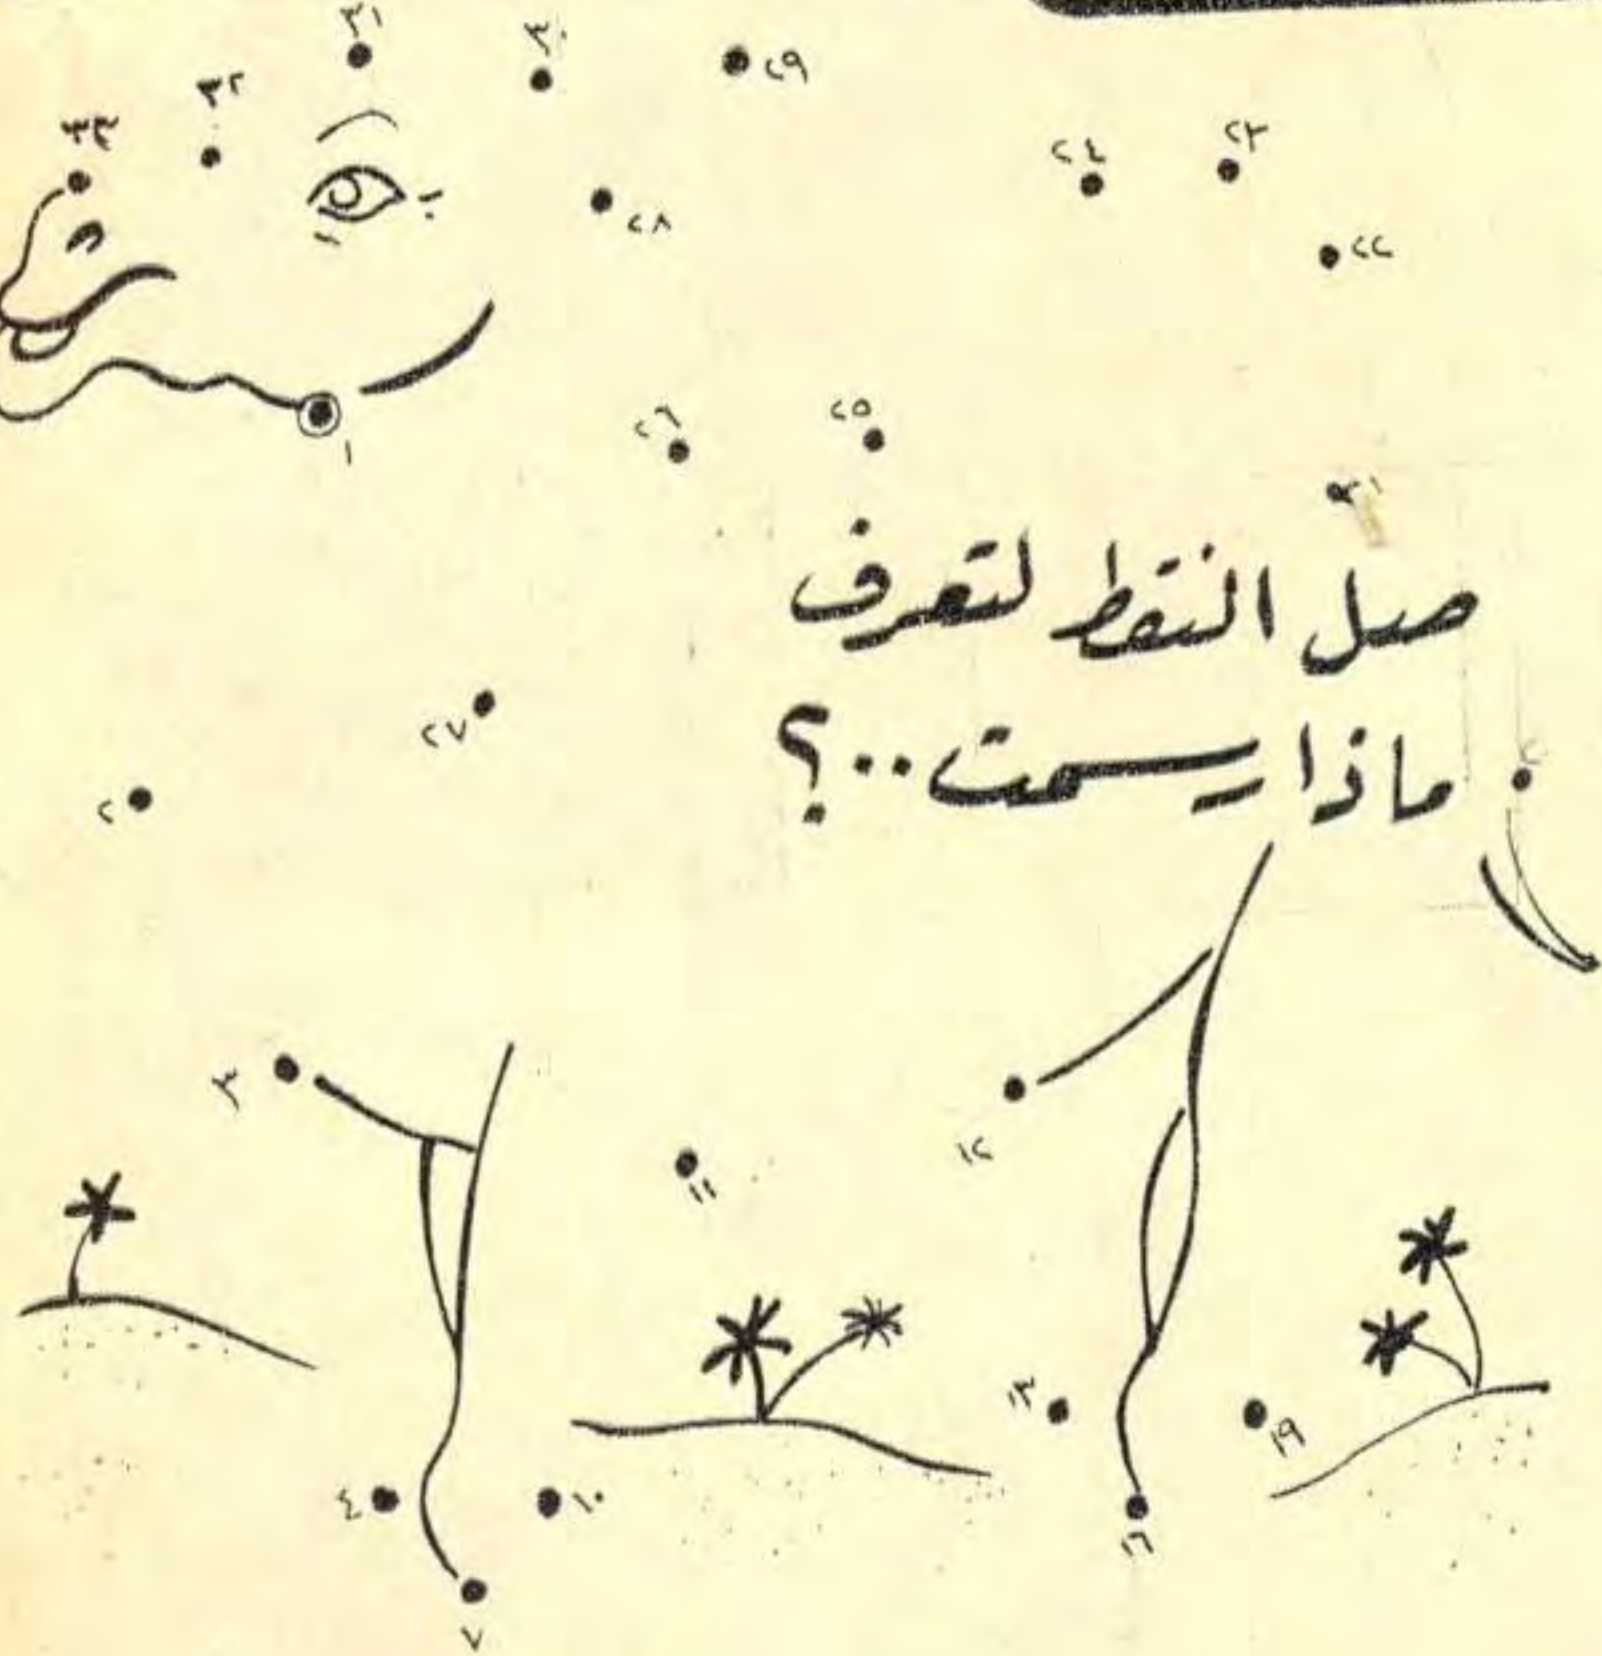 ٣١
٣٠
٢٩
٣٢
٣٣
٢٤
٢٣
٢٨
٢٢
١
٢٦
٢٥
٢١
صل النقط لتعرف
ماذا رسمت..؟
٢٧
٢
٣
١٢
١١
١٣
١٩
٤
١٠
١٦
٧